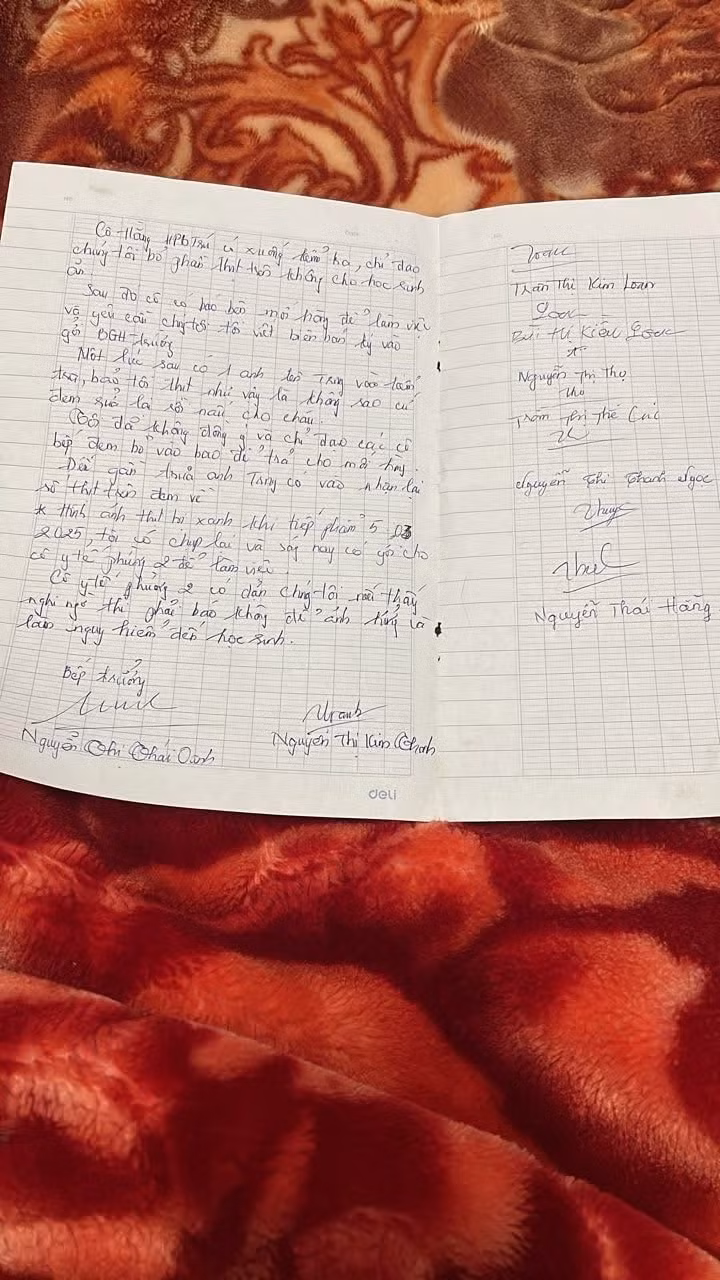 Cô Hằng HPbTrú có xuống kiểm tra, chỉ đạo
chúng tôi bỏ phần thịt trên không cho học sinh
ăn.
Sau đó cô có báo bên mối hàng để làm việc
và yêu cầu chúng tôi viết biên bản ký vào
gởi BGH trường
Một lúc sau có 1 anh tên Trung vào kiểm
tra, bảo tôi thịt như vậy là không sao cứ
đem quả la sô nấu cho cháu.
Cô đã không đồng ý và chỉ đạo các cô
bếp đem bỏ vào bao để trả cho mối hàng.
Đến gần trưa anh Trung có vào nhận lại
số thịt trên đem về
* Hình ảnh thịt bị xanh khi tiếp phẩm 5 03
2025, tôi có chụp lại và sáng nay có gởi cho
cô y tế phường 2 để làm việc.
Cô y tế phường 2 có dặn chúng tôi nếu thấy
nghi ngờ thì phải báo không để ảnh hưởng và
làm nguy hiểm đến học sinh.
Bếp trưởng
Nguyễn Thị Thái Oanh
Nguyễn Thị Kim Thanh
deli
Loan
Trần Thị Kim Loan
Bùi Thị Kiều
Nguyễn Thị Thọ
Thọ
Trần Thị Thế Cúc
Nguyễn Thị Thanh Ngọc
Nguyễn Thái Hằng